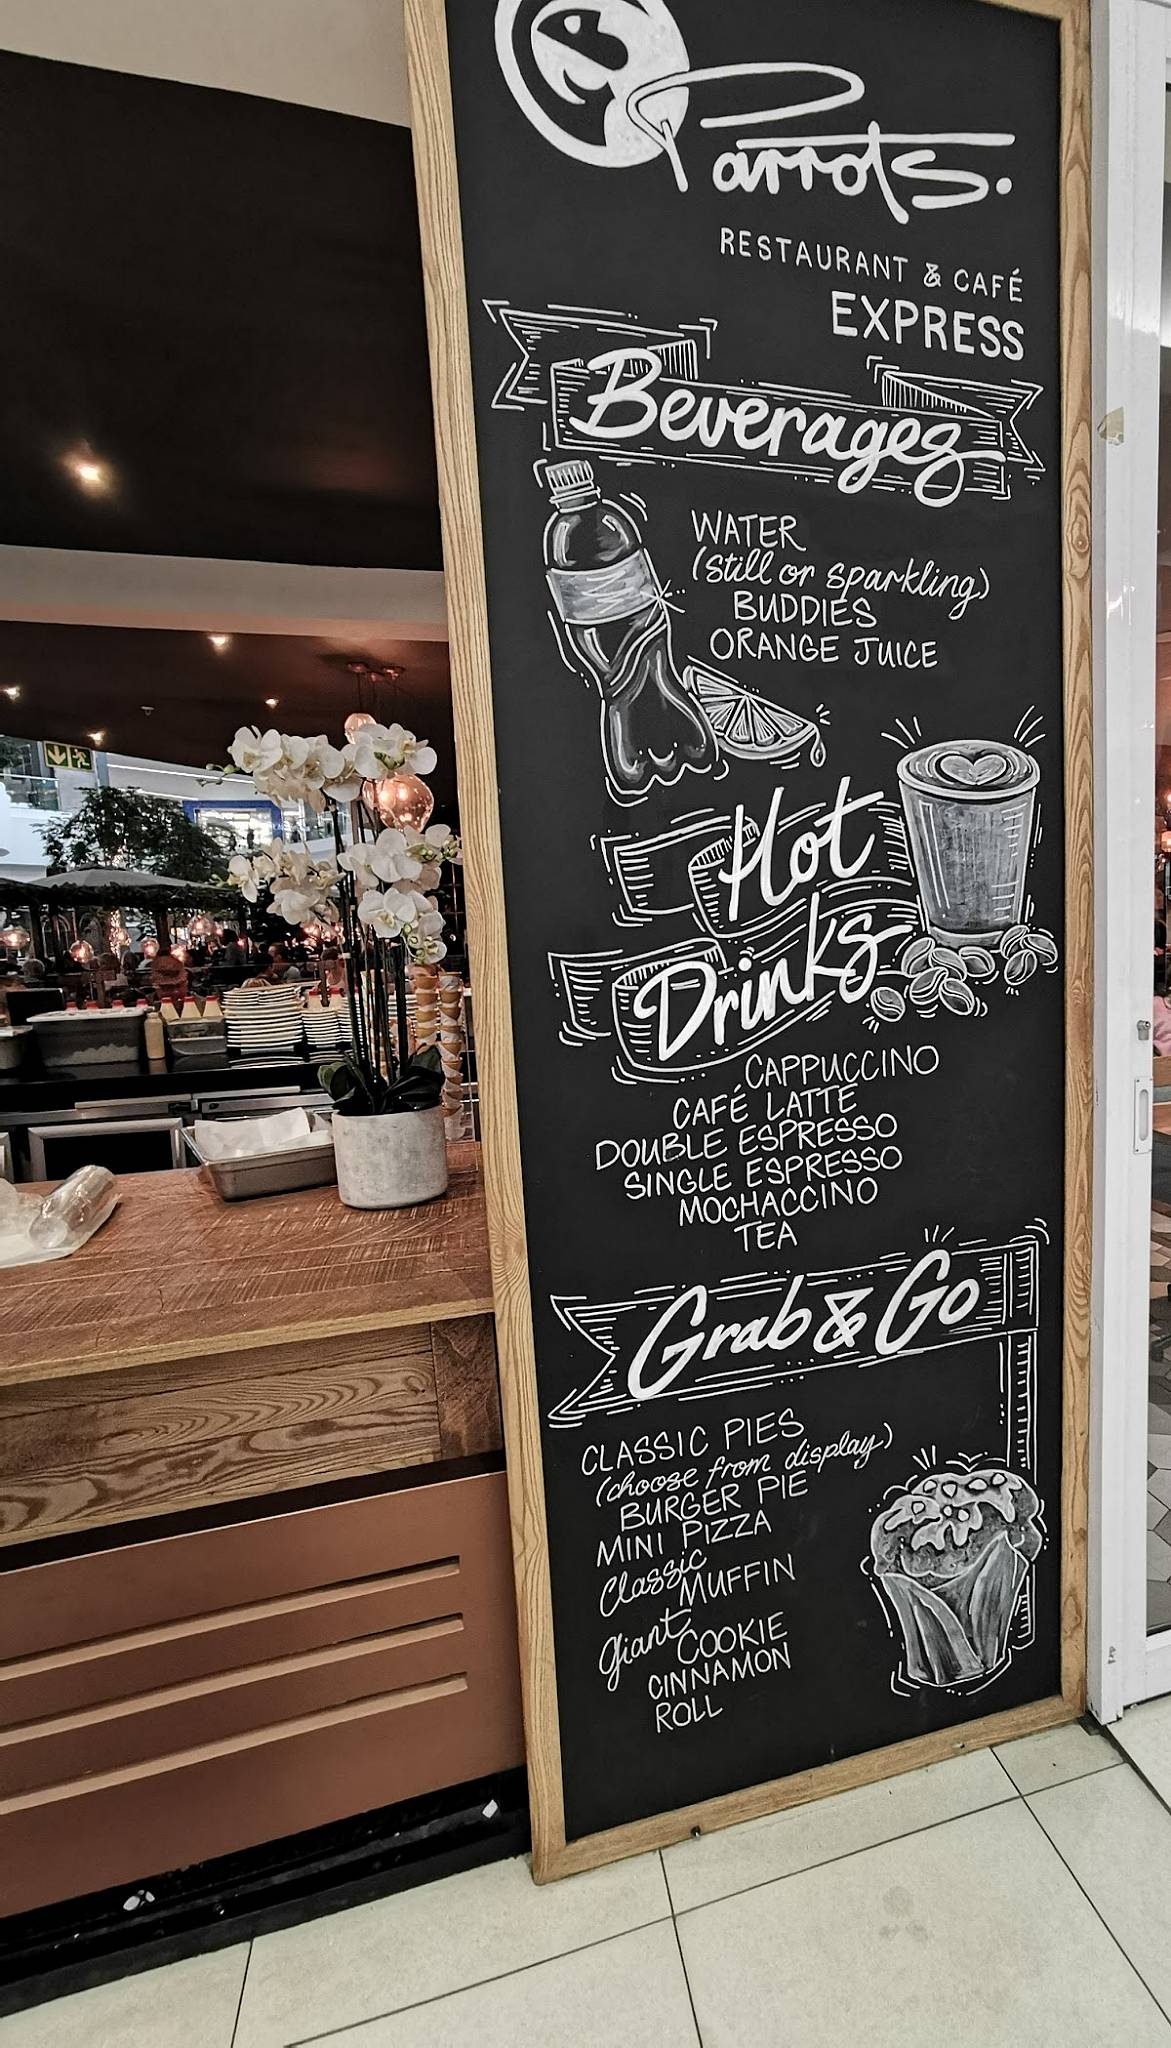 Parrots.
RESTAURANT & CAFÉ
EXPRESS
Beverages
WATER
(still or sparkling)
BUDDIES
ORANGE JUICE
Hot
Drinks
CAPPUCCINO
CAFÉ LATTE
DOUBLE ESPRESSO
SINGLE ESPRESSO
MOCHACCINO
TEA
Grab & Go
CLASSIC PIES
(choose from display)
BURGER PIE
MINI PIZZA
Classic
MUFFIN
Giant
COOKIE
CINNAMON
ROLL